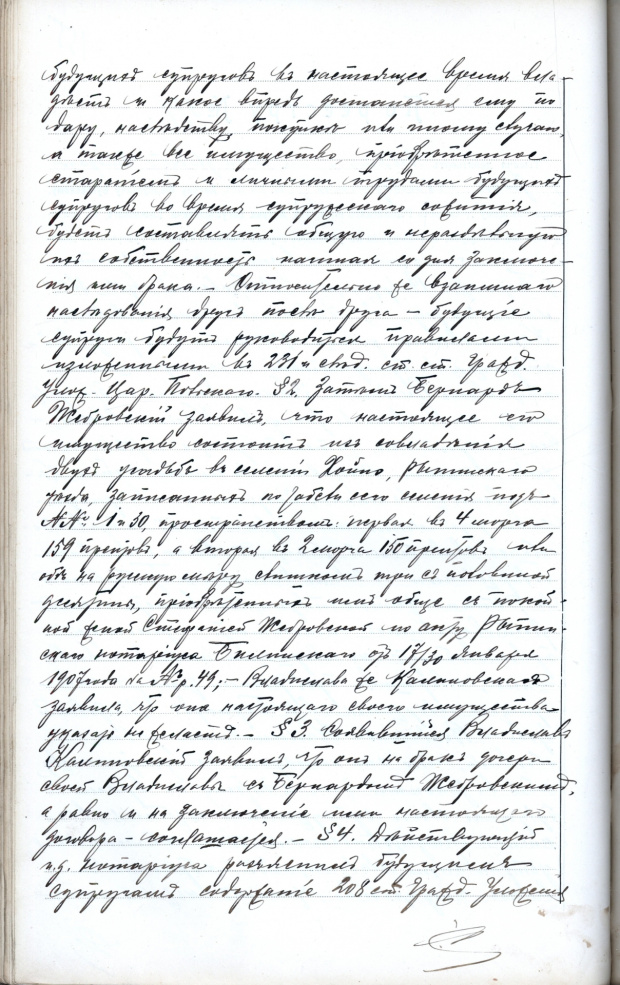 будущих супругов въ настоящее время вла-
дѣетъ и какое впредь достанется ему по
дару, наслѣдству покупкѣ или иному случаю,
а также все имущество, пріобрѣтенное
стараніемъ и личными трудами будущихъ
супруговъ во время супружескаго сожитія,
будетъ составлять общую и нераздѣльную
ихъ собственность начиная со дня заключе-
нія ими брака. - Относительно же взаимнаго
наслѣдованія другъ послѣ друга - будущіе
супруги будутъ руководиться правилами
изложенными въ 231 и слѣд. ст. ст. Гражд.
Улож. Цар. Польскаго. § 2. Затѣмъ Бернардъ
Жебровскій заявилъ, что настоящее его
имущество состоитъ изъ совладѣнія
двухъ усадьбъ въ селеніи Хойно, Рыпинскаго
уѣзда, записанныхъ по табели сего селенія подъ
№№ 1 и 30, пространствомъ: первая въ 4 морга
159 прентовъ, а вторая въ 2 морга 150 прентовъ или
обѣ на русскую мѣру слишкомъ три съ половиной
десятины, пріобрѣтенныхъ имъ обще съ покой-
ной женой Стефаніей Жебровской по акту Рыпин-
скаго нотаріуса Билинскаго отъ 17/30 Января
1907 года за № р. 49; - Владислава же Калиновская
заявила, что она настоящаго своего имущества
указать не желаетъ. - § 3. Сознавшійся Владиславъ
Калиновскій заявилъ, что онъ на бракъ дочери
своей Владиславы съ Бернардомъ Жебровскимъ,
а равно и на заключеніе ими настоящаго
договора - соглашается. - § 4. Дѣйствующій
и. д. нотаріуса разъяснилъ будущимъ
супругамъ содержаніе 208 ст. Гражд. Уложенія